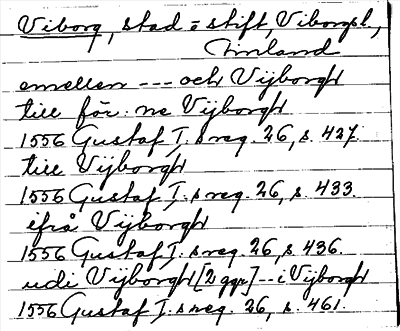 Viborg, stad o stift, Viborgsl.,
Finland
emellen --- och Vijborgh
till för:ne Vijborgh
1556 Gustaf I:s reg. 26, s. 427.
till Vijborgh
1556 Gustaf I:s reg. 26, s. 433.
ifrå Vijborgh
1556 Gustaf I:s reg. 26, s. 436.
udi Vijborgh [2 ggr] -- i Vijborgh
1556 Gustaf I:s reg. 26, s. 461.